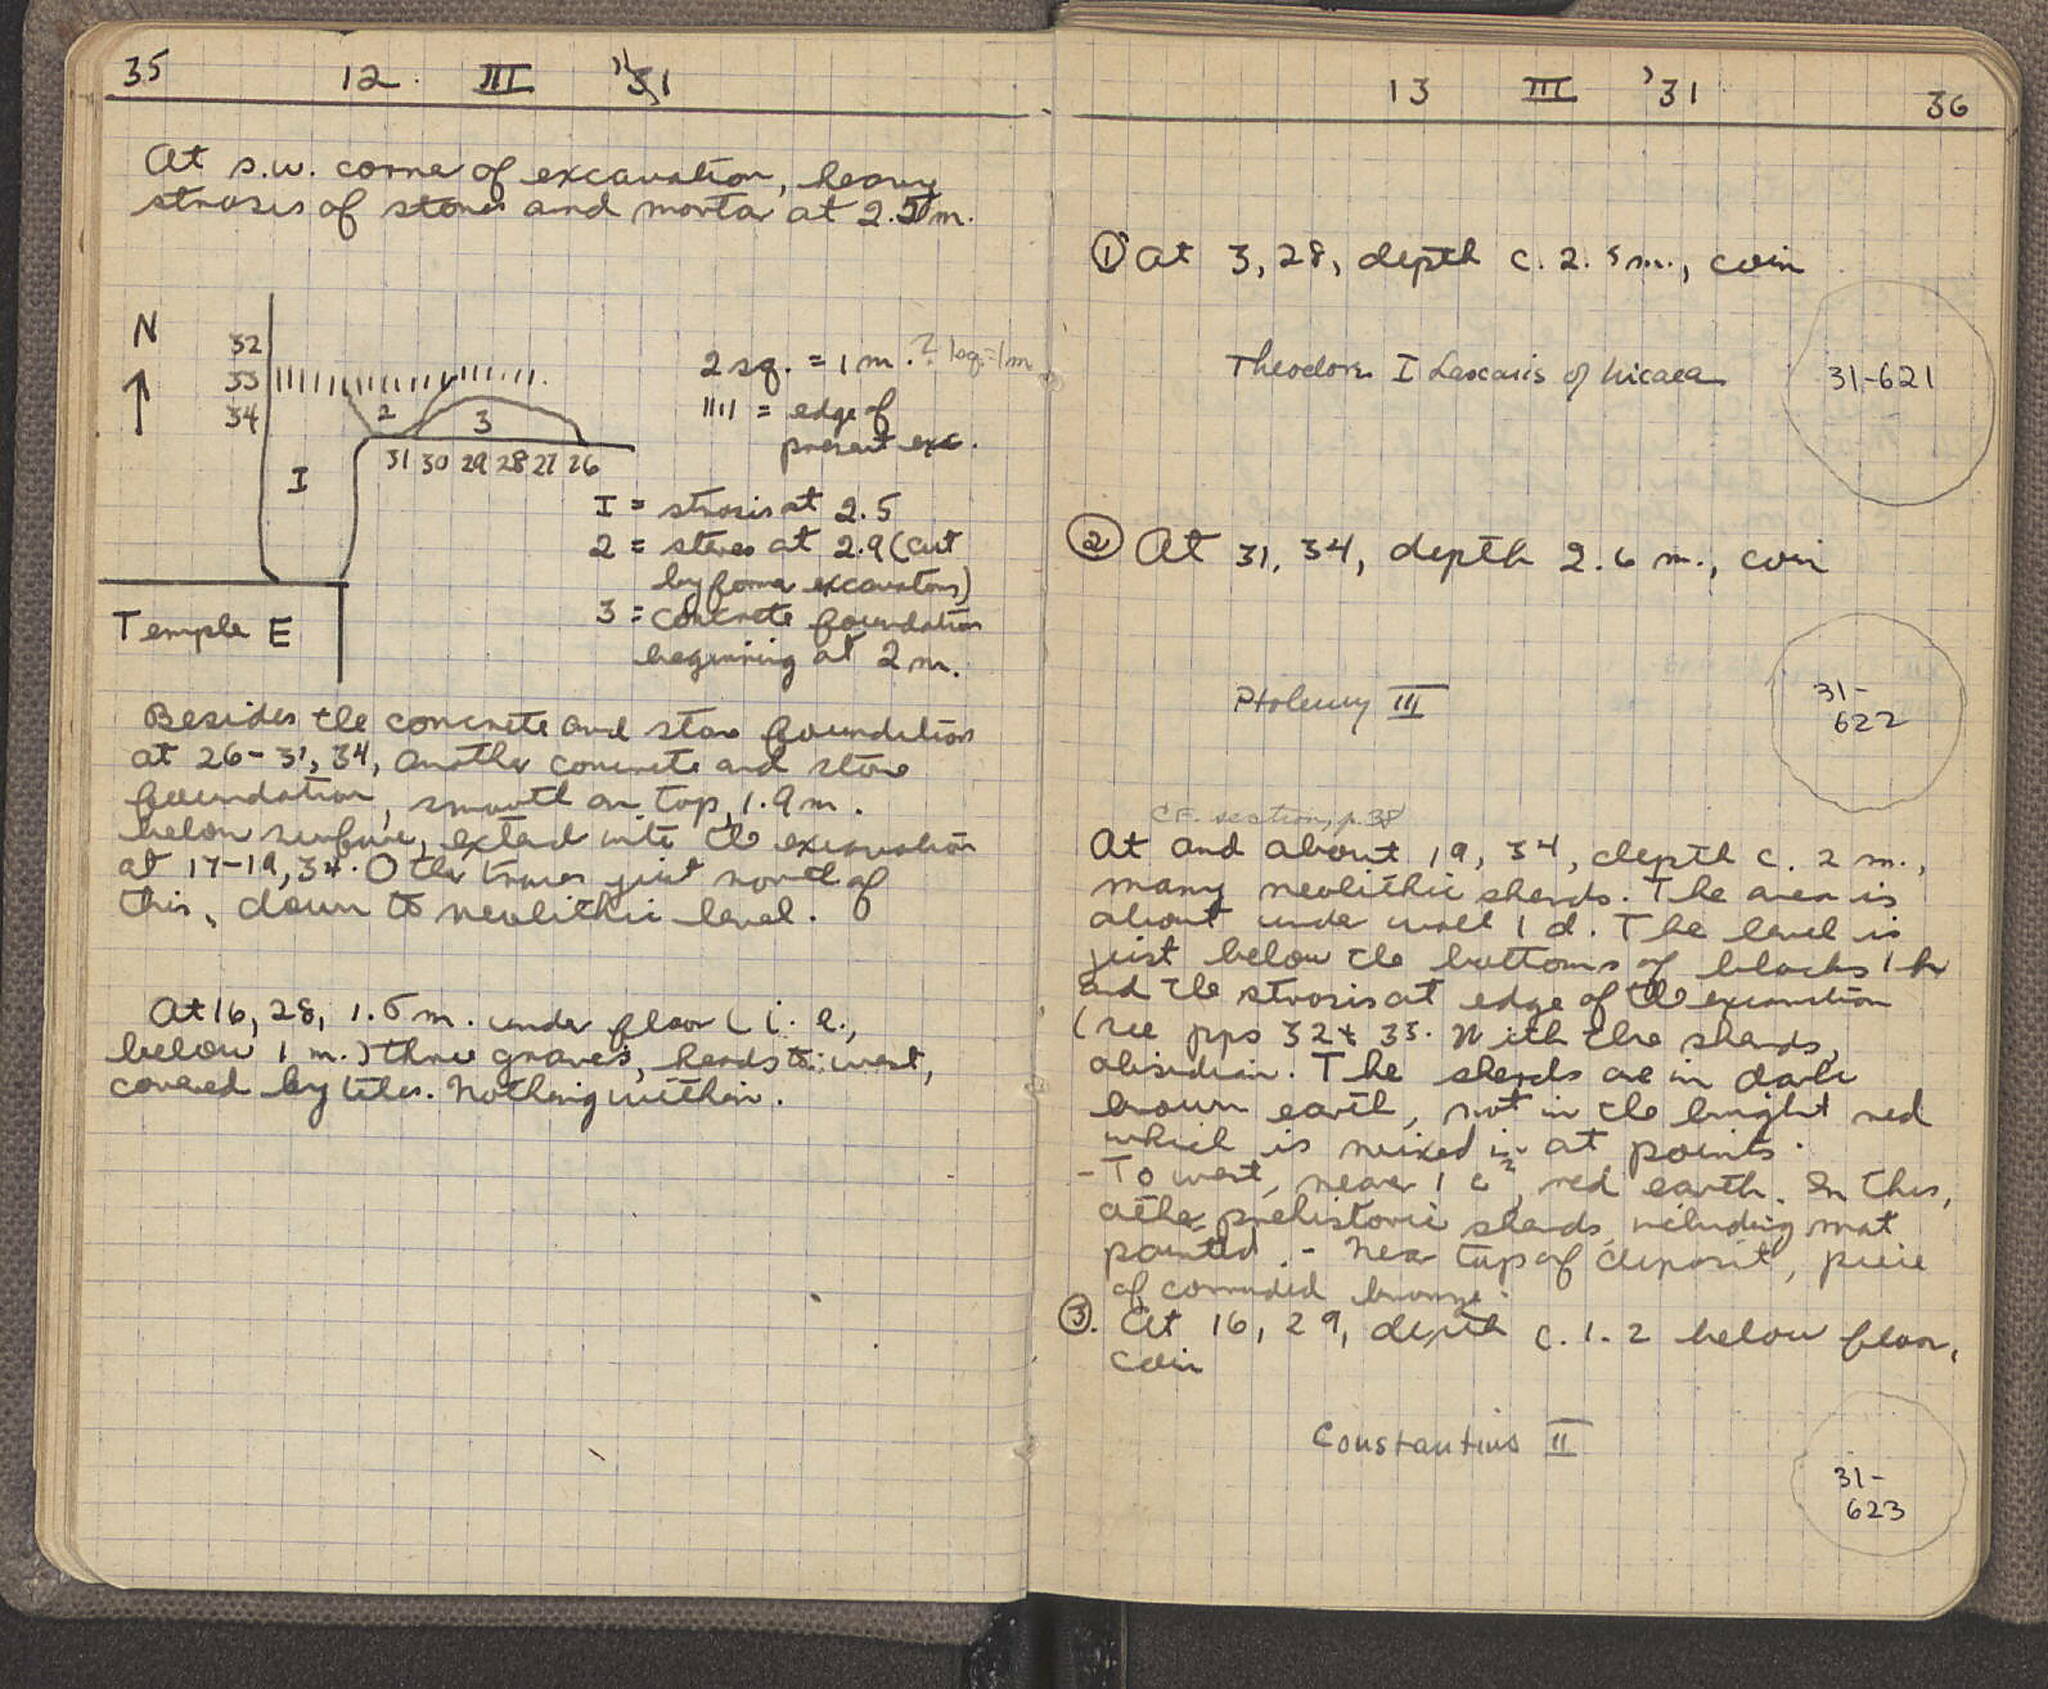 35 12 III '31
At s.w. corner of excavation, heavy
strosis of stones and mortar at 2.5 m.
N
32
33
34
2
3
I
31 30 29 28 27 26
2 sq. = 1 m. ? 1sq.=1m
"" = edge of
present exc.
I = strosis at 2.5
2 = stones at 2.9 (cut
by former excavators)
3 = concrete foundation
beginning at 2 m.
Temple E
Besides the concrete and stone foundation
at 26-31, 34, another concrete and stone
foundation, smooth on top, 1.9 m.
below surface, extend into the excavation
at 17-19, 34. Other traces just north of
this, down to neolithic level.
At 16, 28, 1.5 m. under floor (i.e.,
below 1 m.) three graves, heads to west,
covered by tiles. Nothing within.
13 III '31 36
① At 3, 28, depth c. 2.5 m., coin
Theodore I Lascaris of Nicaea
31-621
② At 31, 34, depth 2.6 m., coin
Ptolemy III
31-
622
CF. section, p. 38
At and about 19, 34, depth c. 2 m.,
many neolithic sherds. The area is
about under wall 1 d. The level is
just below the bottoms of blocks 1 h
and the strosis at edge of the excavation
(see pps 32 & 33. With the sherds,
obsidian. The sherds are in dark
brown earth, not in the bright red
which is mixed in at points.
- To west, near 1 c², red earth. In this,
other prehistoric sherds, including mat
painted. - Near top of deposit, piece
of corroded bronze.
③. At 16, 29, depth c. 1.2 below floor,
coin
Constantius II
31-
623